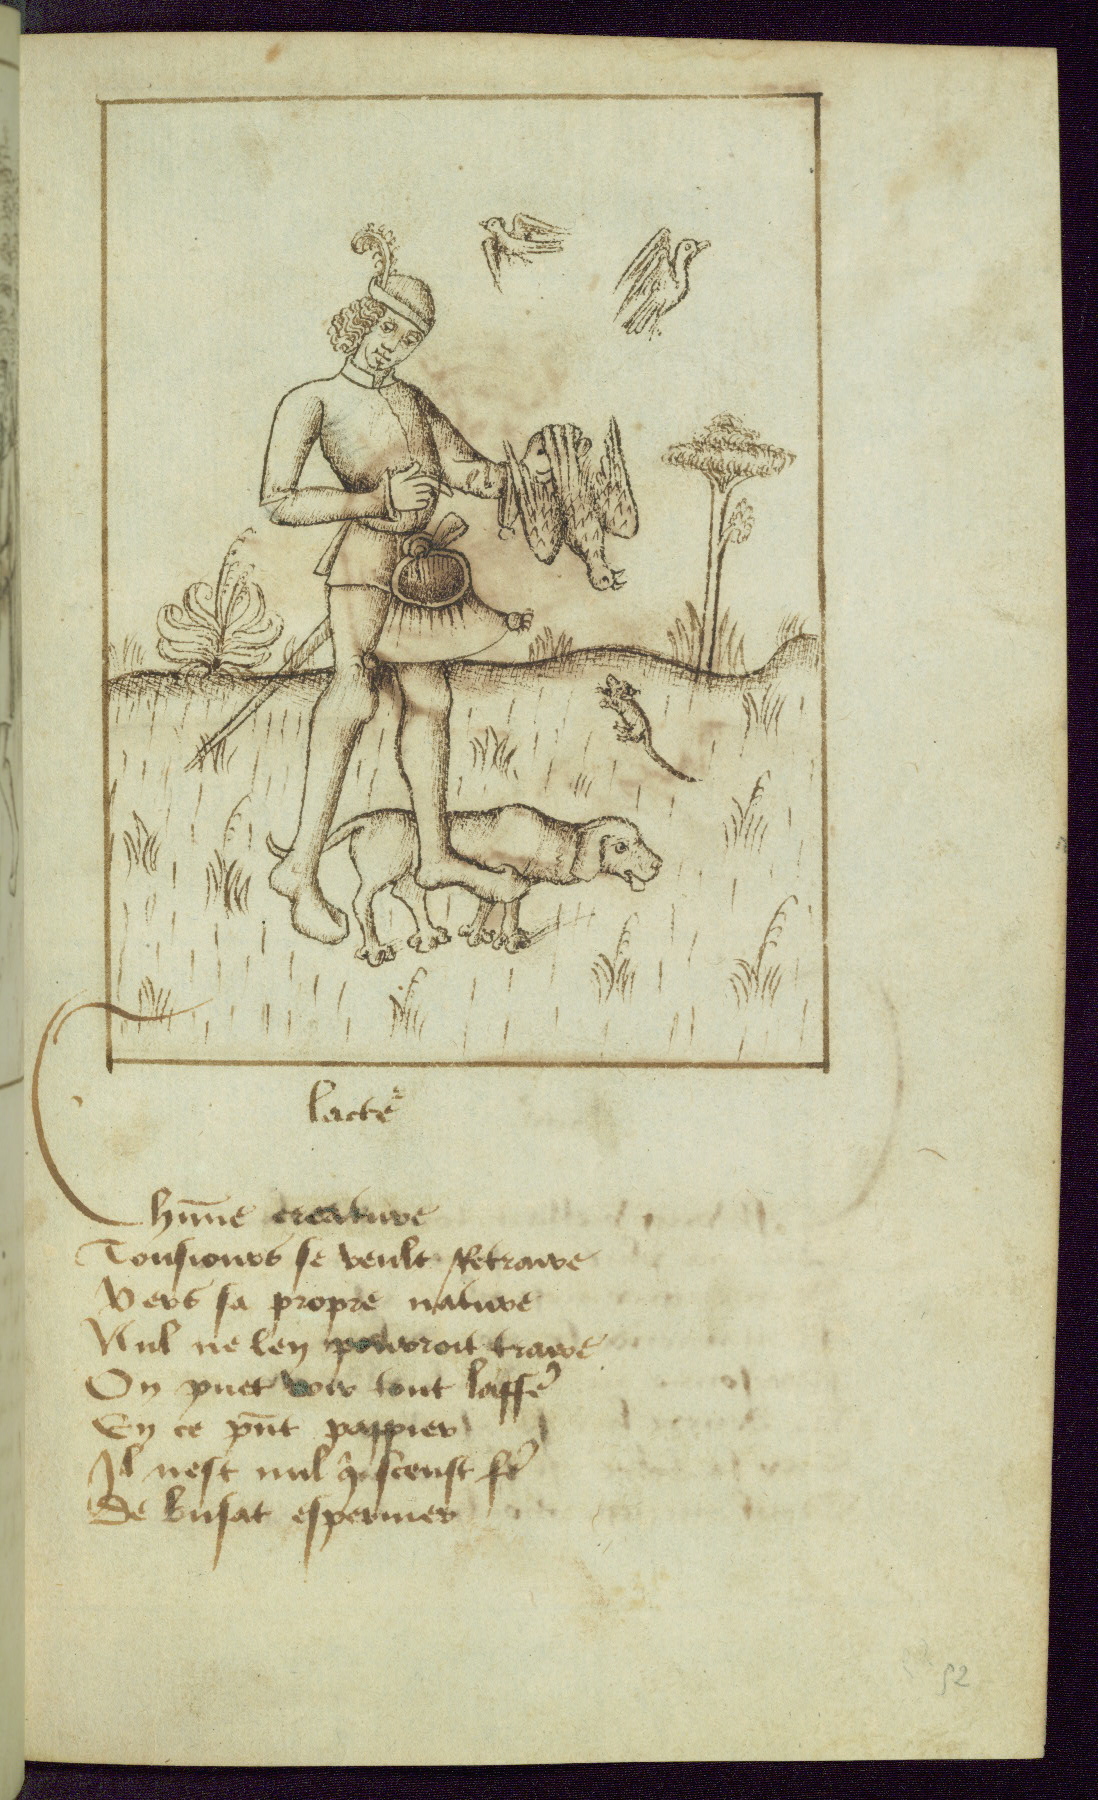 lacte᷑
Chūne creature
Tousiours se veult Retraire
Vers sa propre nature
Nul ne len pourroit traire
On puet voir tout laisse᷑
En ce pn̄t pappier
Il nest nul q̄ sceust fe᷑
De busat espervier
52